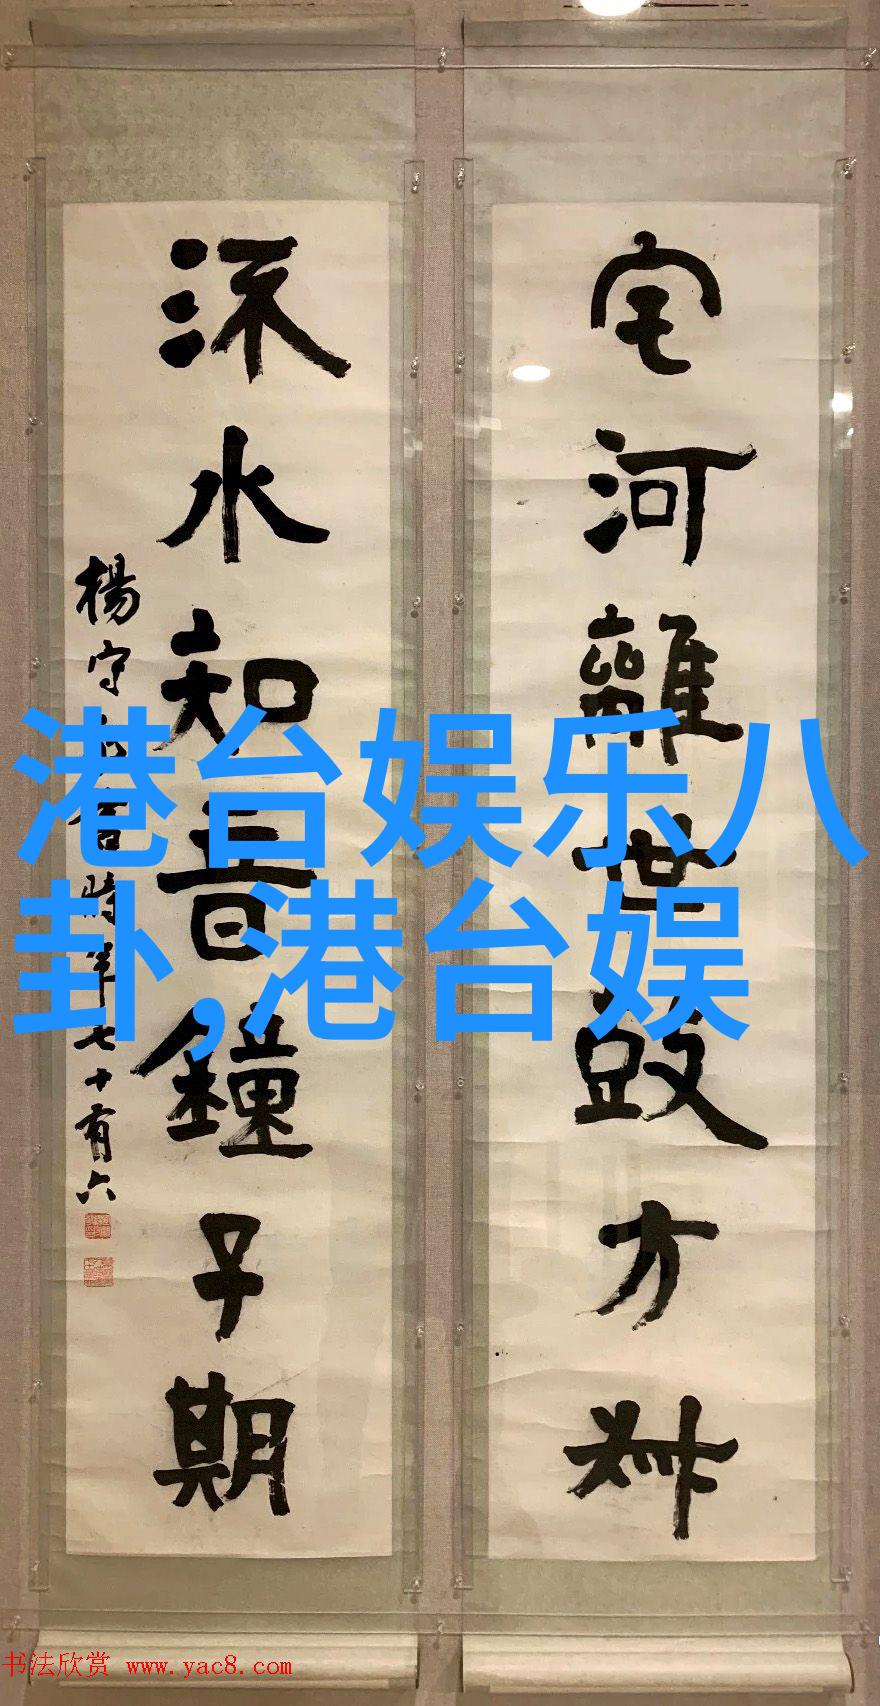 宅河離世鼓方叔
流水知音鐘子期
楊守敬書時年七十有六
港台娱乐八
卦,港台娱
书法欣赏 www.yac8.com